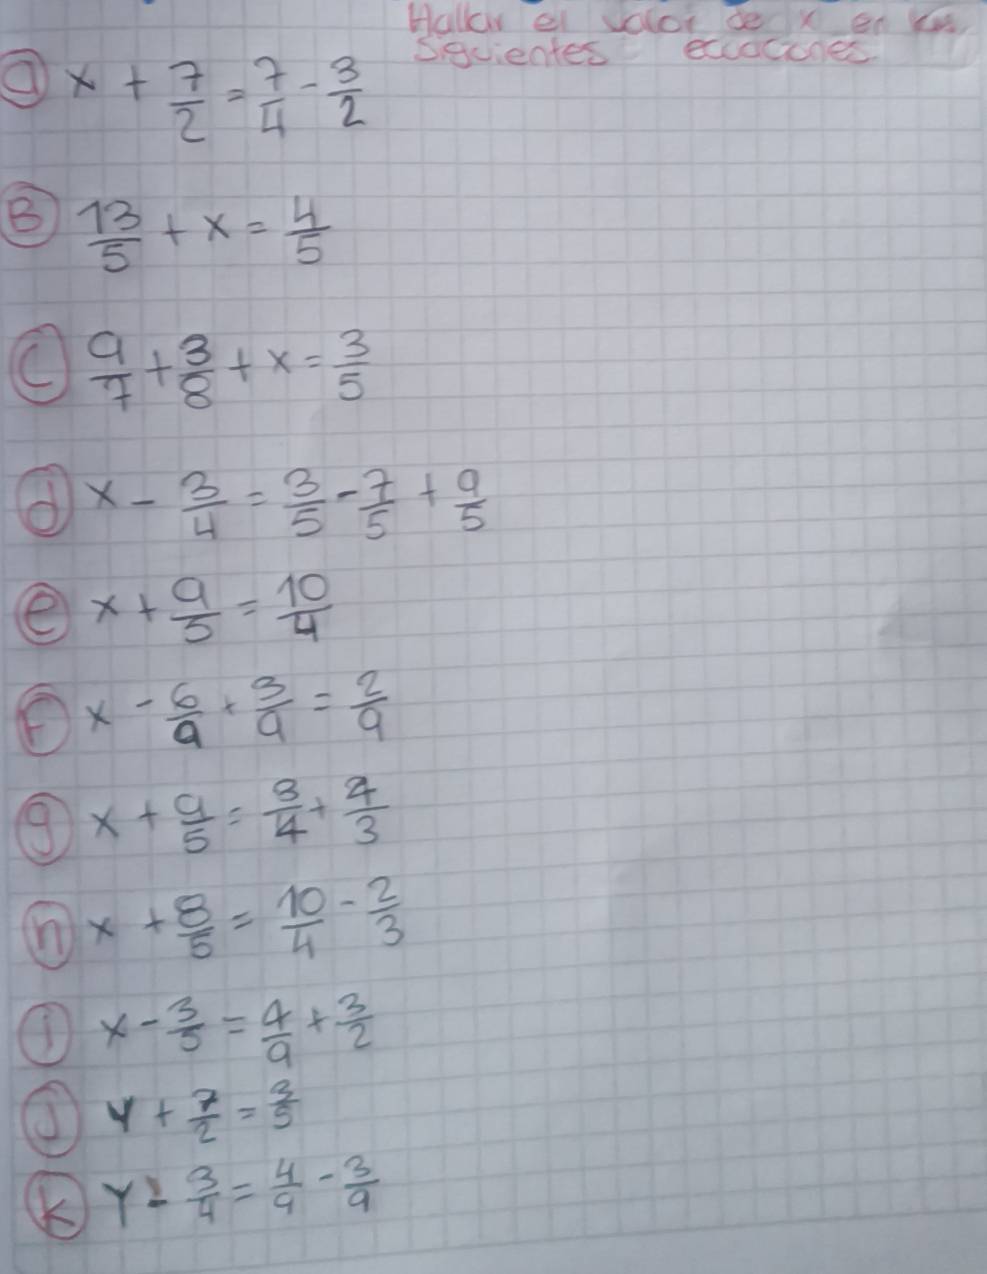 Hallar el valor de x en las
siguientes ecuaciones
a) x + 7/2 = 7/4 - 3/2
B) 13/5 + x = 4/5
c) 9/7 + 3/8 + x = 3/5
d) x - 3/4 = 3/5 - 7/5 + 9/5
e) x + 9/5 = 10/4
f) x - 6/9 + 3/9 = 2/9
g) x + 9/5 = 3/4 + 4/3
h) x + 8/5 = 10/4 - 2/3
i) x - 3/5 = 4/9 + 3/2
J) y + 7/2 = 3/5
K) y - 3/4 = 4/9 - 3/9